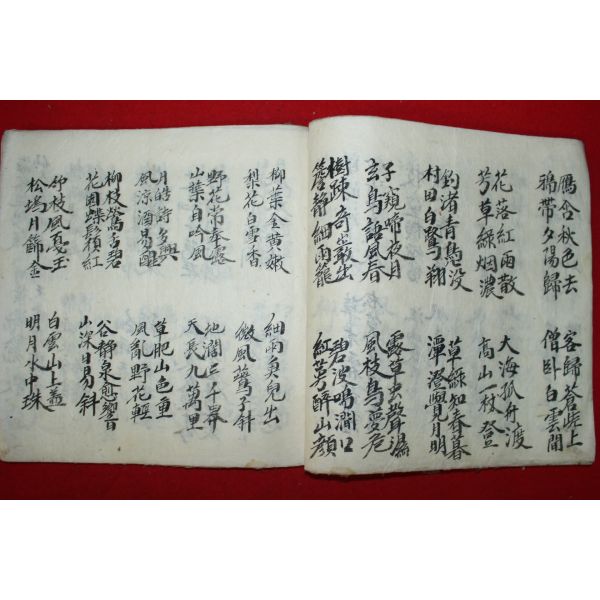 鴈含秋色去
鴉帶夕陽歸
花落紅雨散
芳草綠烟濃
釣渚青鳧没
村田白鷺翔
子窺啼夜月
玄鳥語風春
樹疎奇巖出
簷静細雨籠
客歸蒼上
僧臥白雲間
大海孤舟渡
高山一杖登
草綠知春暮
潭澄覺月明
露草虫聲濕
風枝鳥夢危
碧波鳴澗口
紅芳醉山顔
柳葉金黄嫩
梨花白雪香
野花常奉露
山葉自吟風
月皓詩多興
風凉酒易醒
柳枝鶯舌碧
花園蝶鬚紅
竹枝風戛玉
松塢月篩金
細雨魚兒出
微風鷰子斜
地濶三千界
天長九萬里
草肥山色重
風亂野花輕
谷静泉愈響
山深日易斜
白雲山上蓋
明月水中珠